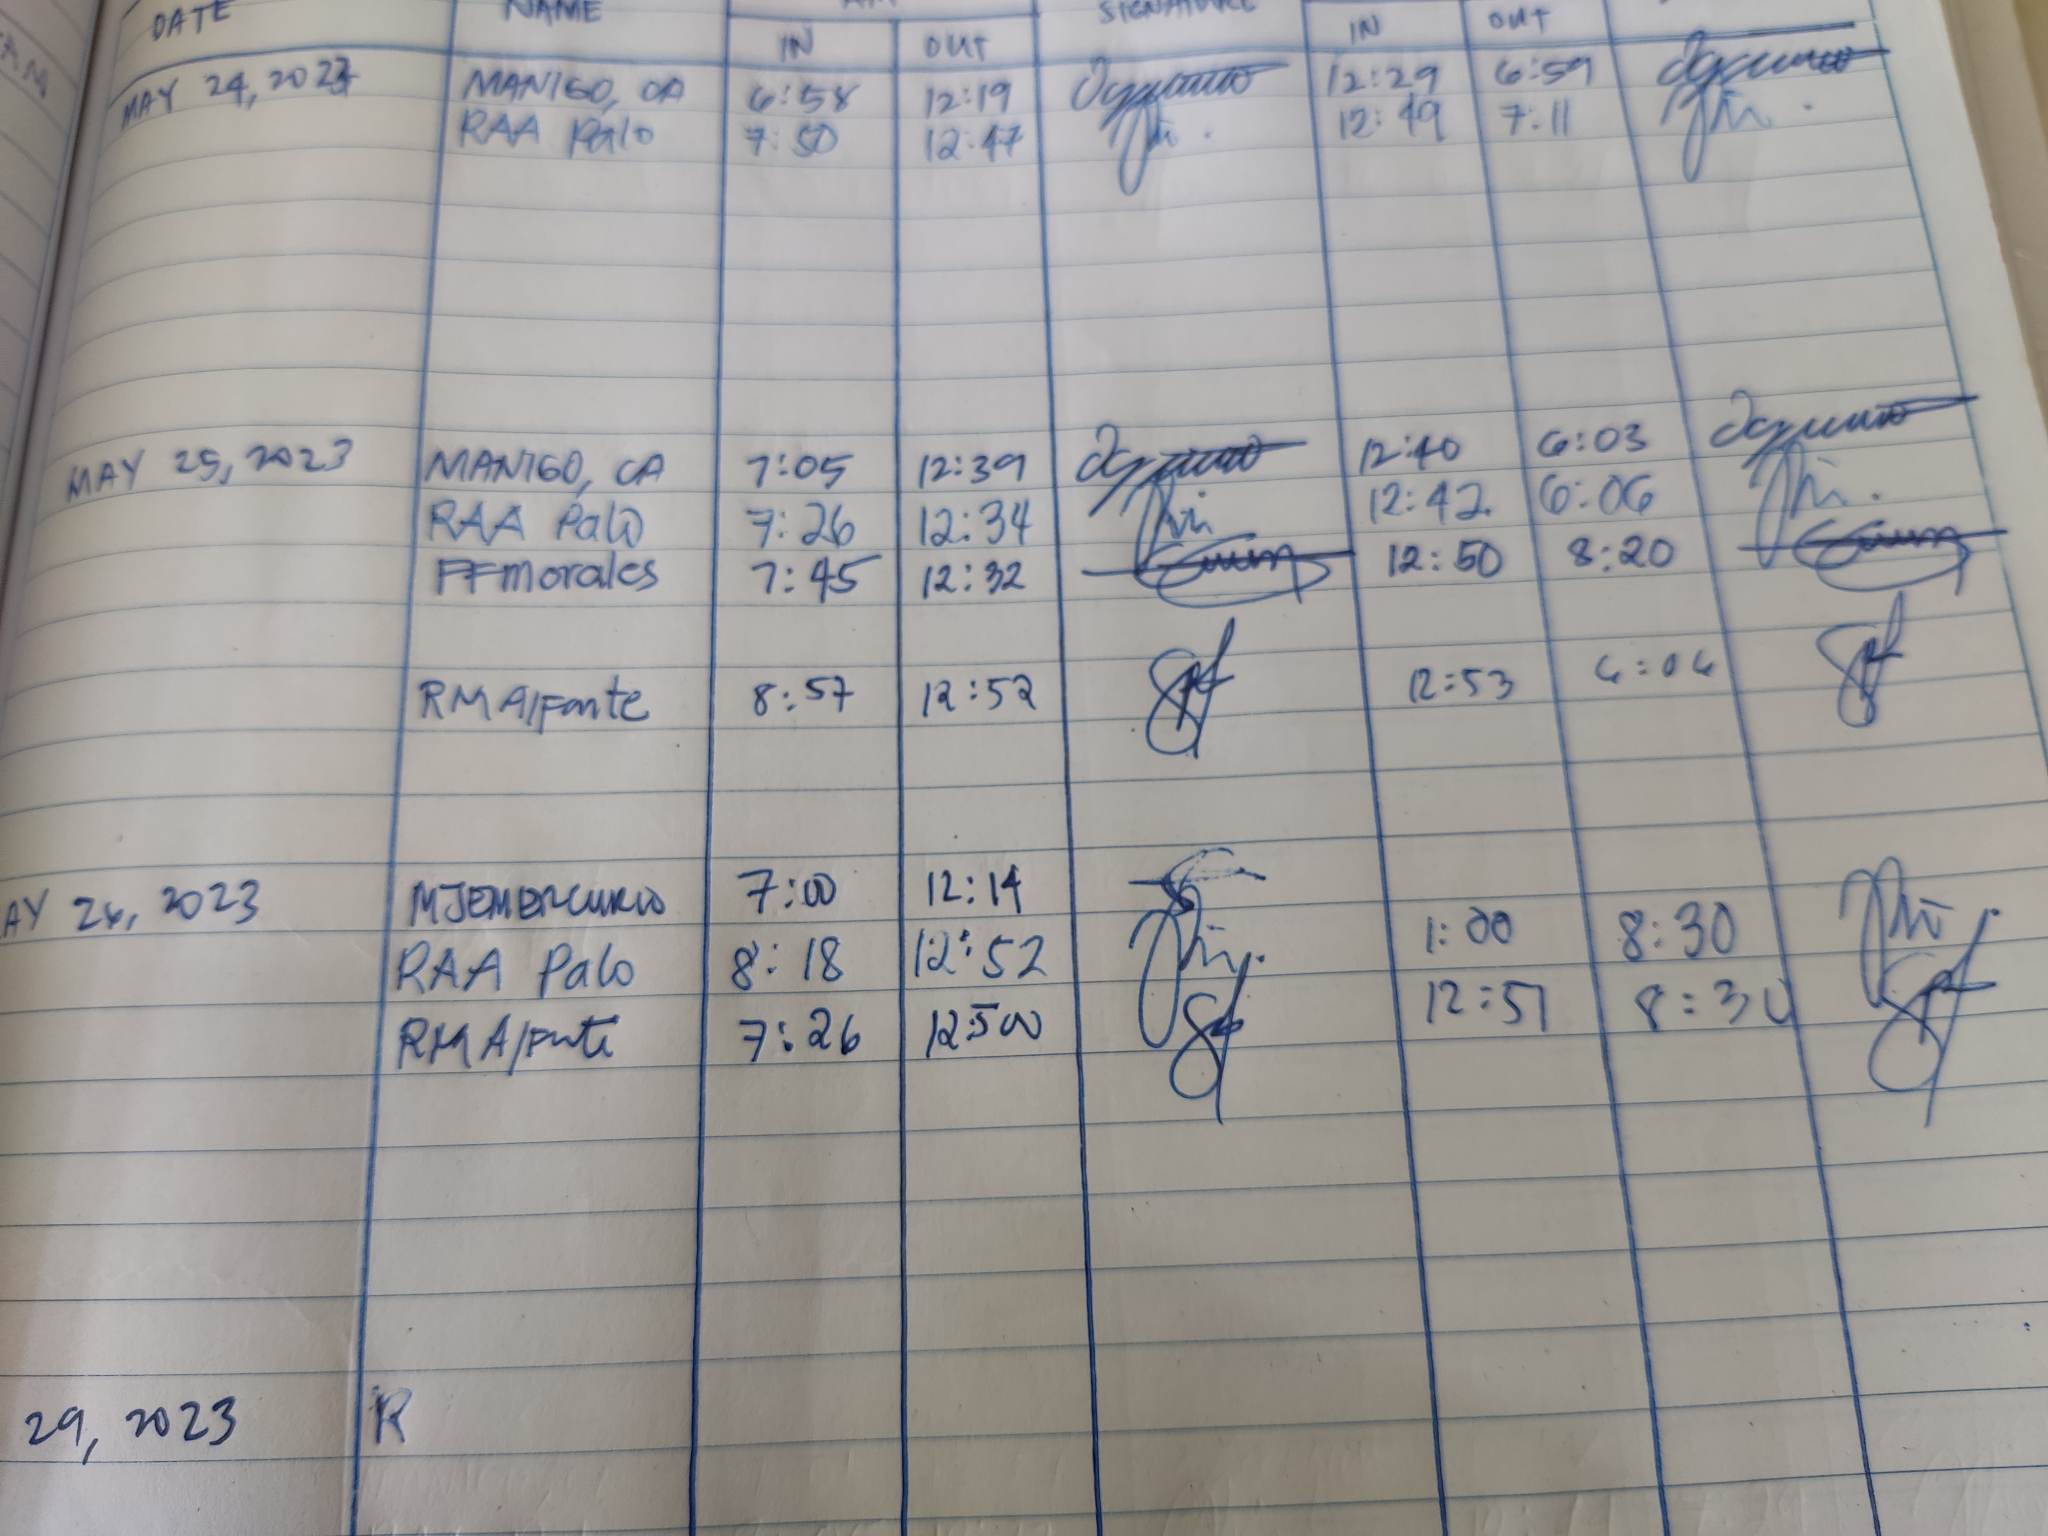 DATE NAME SIGNATURE
IN OUT IN OUT
MAY 24, 2023 MANIGO, CA 6:58 12:19 12:29 6:59
RAA Palo 7:50 12:47 12:49 7:11
MAY 25, 2023 MANIGO, CA 7:05 12:39 12:40 6:03
RAA Palo 7:26 12:34 12:42 6:06
FFmorales 7:45 12:32 12:50 8:20
RMA/Fonte 8:57 12:52 12:53 6:06
AY 26, 2023 MJEMERCURIO 7:00 12:14
RAA Palo 8:18 12:52 1:00 8:30
RMA/Fonte 7:26 12:51 8:30
29, 2023 R